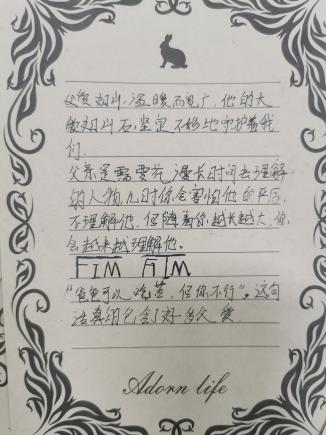 父爱如山，温暖而宽广，他的大
爱如山石，坚定不移地守护着我
们
父亲是需要花漫长时间去理解
的人物，儿时你会害怕他的严厉，
不理解他，但随着你越长越大，你
会越来越理解他。
"爸爸可以吃苦，但你不行"。这句
话真的包含了好多父爱
Adorn life